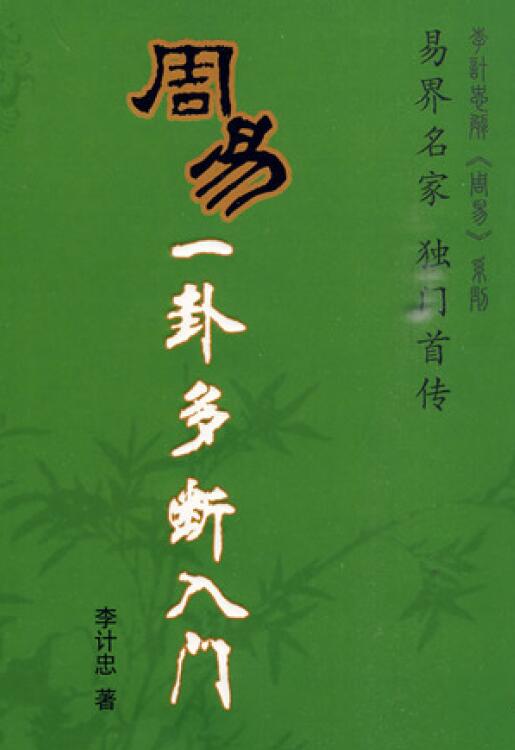 李計忠解《周易》系列
易界名家 独门首传
周易
一卦多断入门
李计忠 著